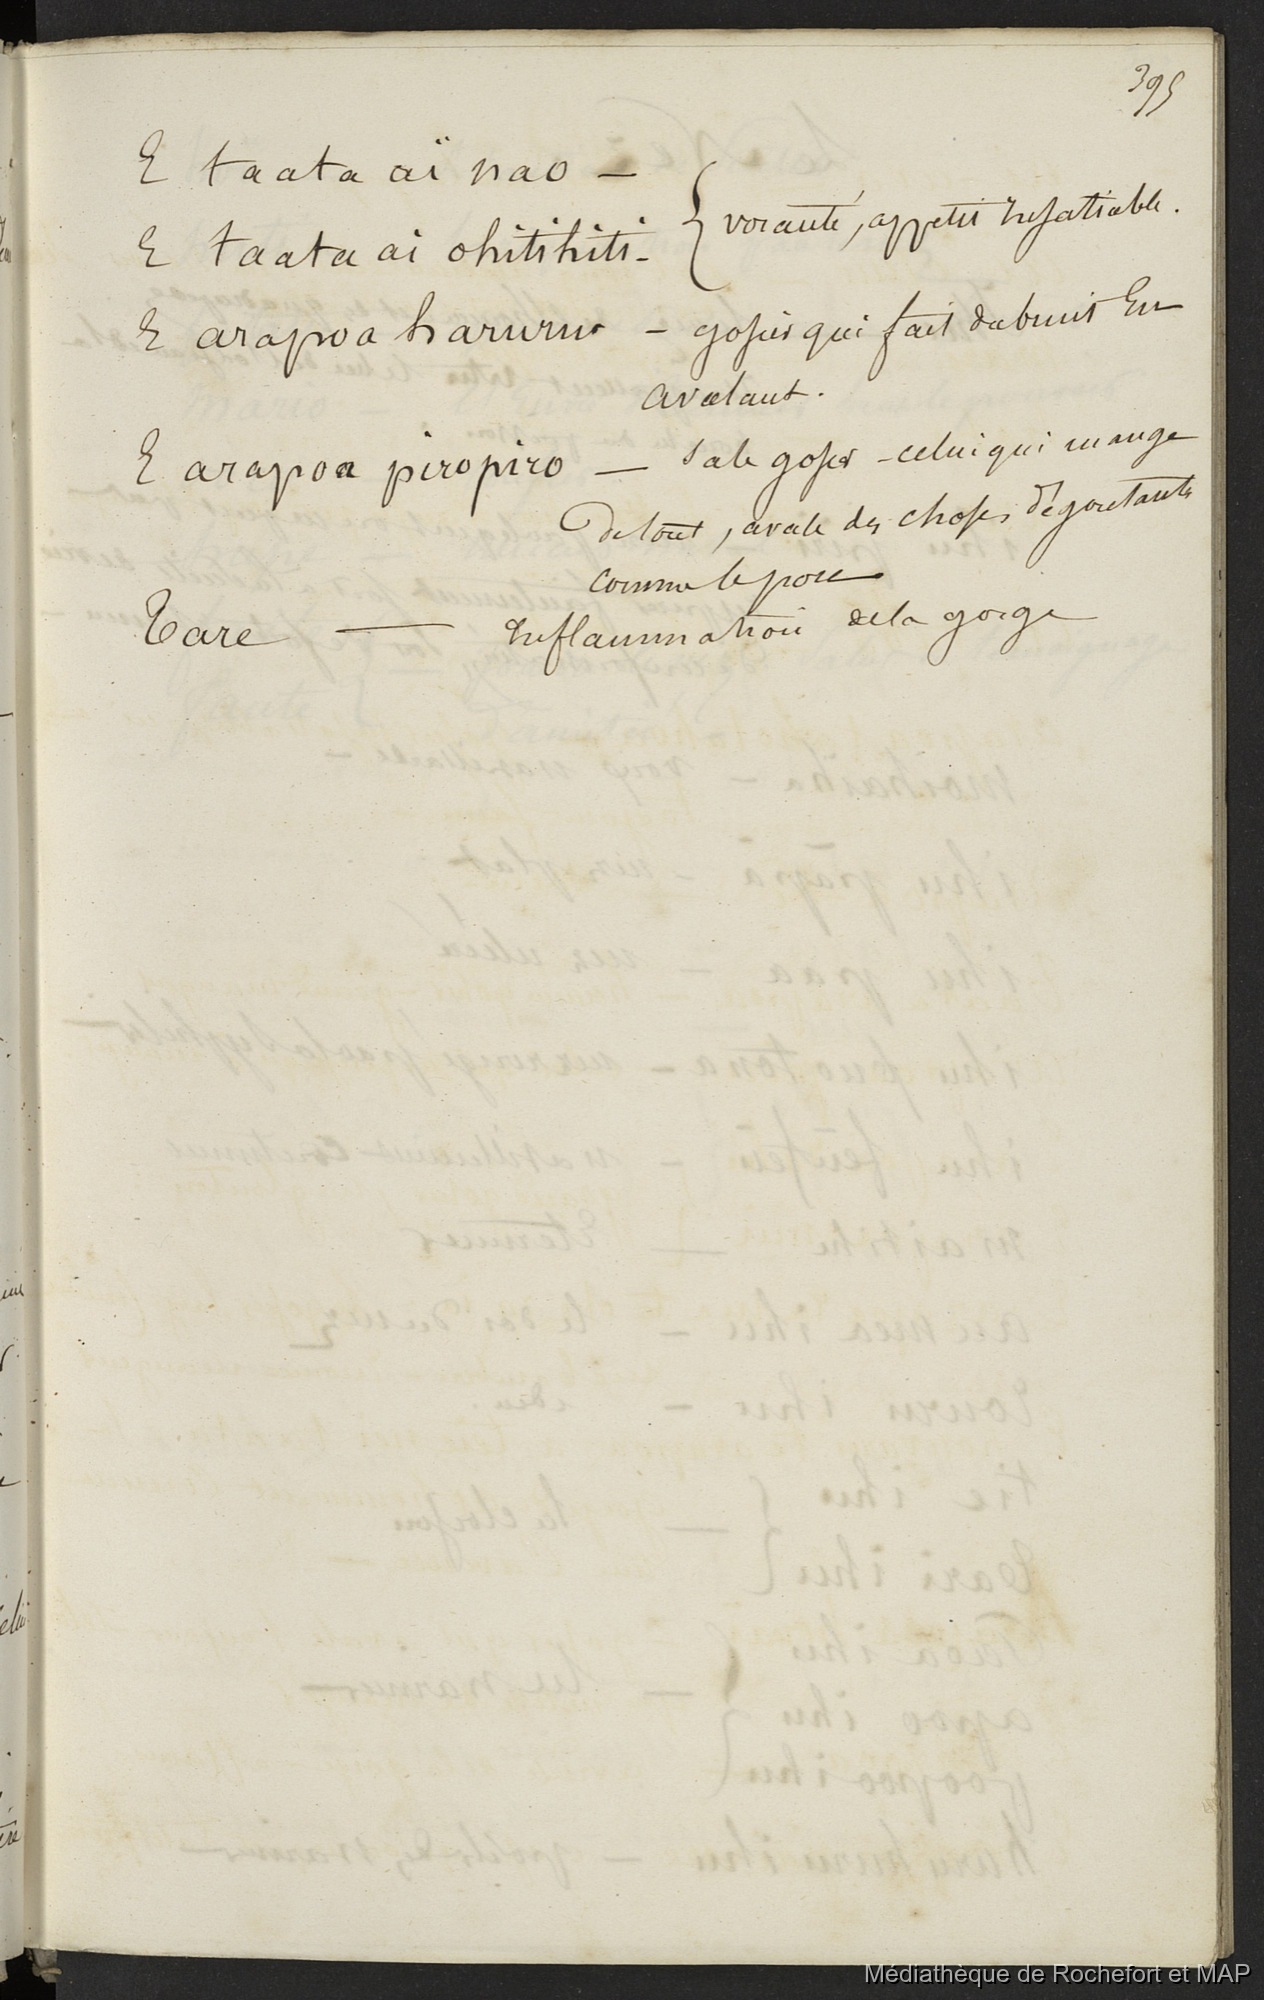 395
E taata aï nao —
E taata ai ohitihiti - { voracité, appetit insatiable.
E arapoa haruru — gosier qui fait du bruit en
avalant.
E arapoa piropiro — sale gosier - celui qui mange
de tout, avale des choses dégoutantes
comme le porc
Tare — inflammation de la gorge
Médiathèque de Rochefort et MAP